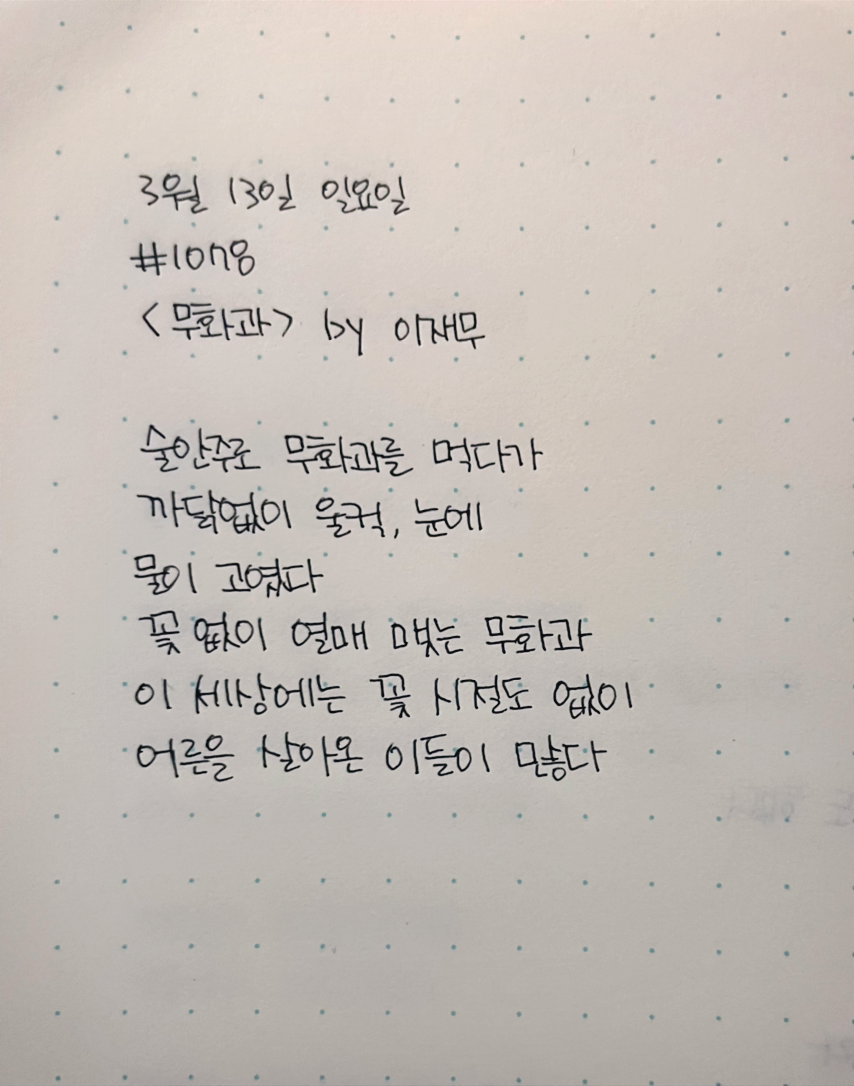 3월 13일 일요일
#1078
<무화과> by 이재무
술안주로 무화과를 먹다가
까닭없이 울컥, 눈에
물이 고였다
꽃 없이 열매 맺는 무화과
이 세상에는 꽃 시절도 없이
어른을 살아온 이들이 많다